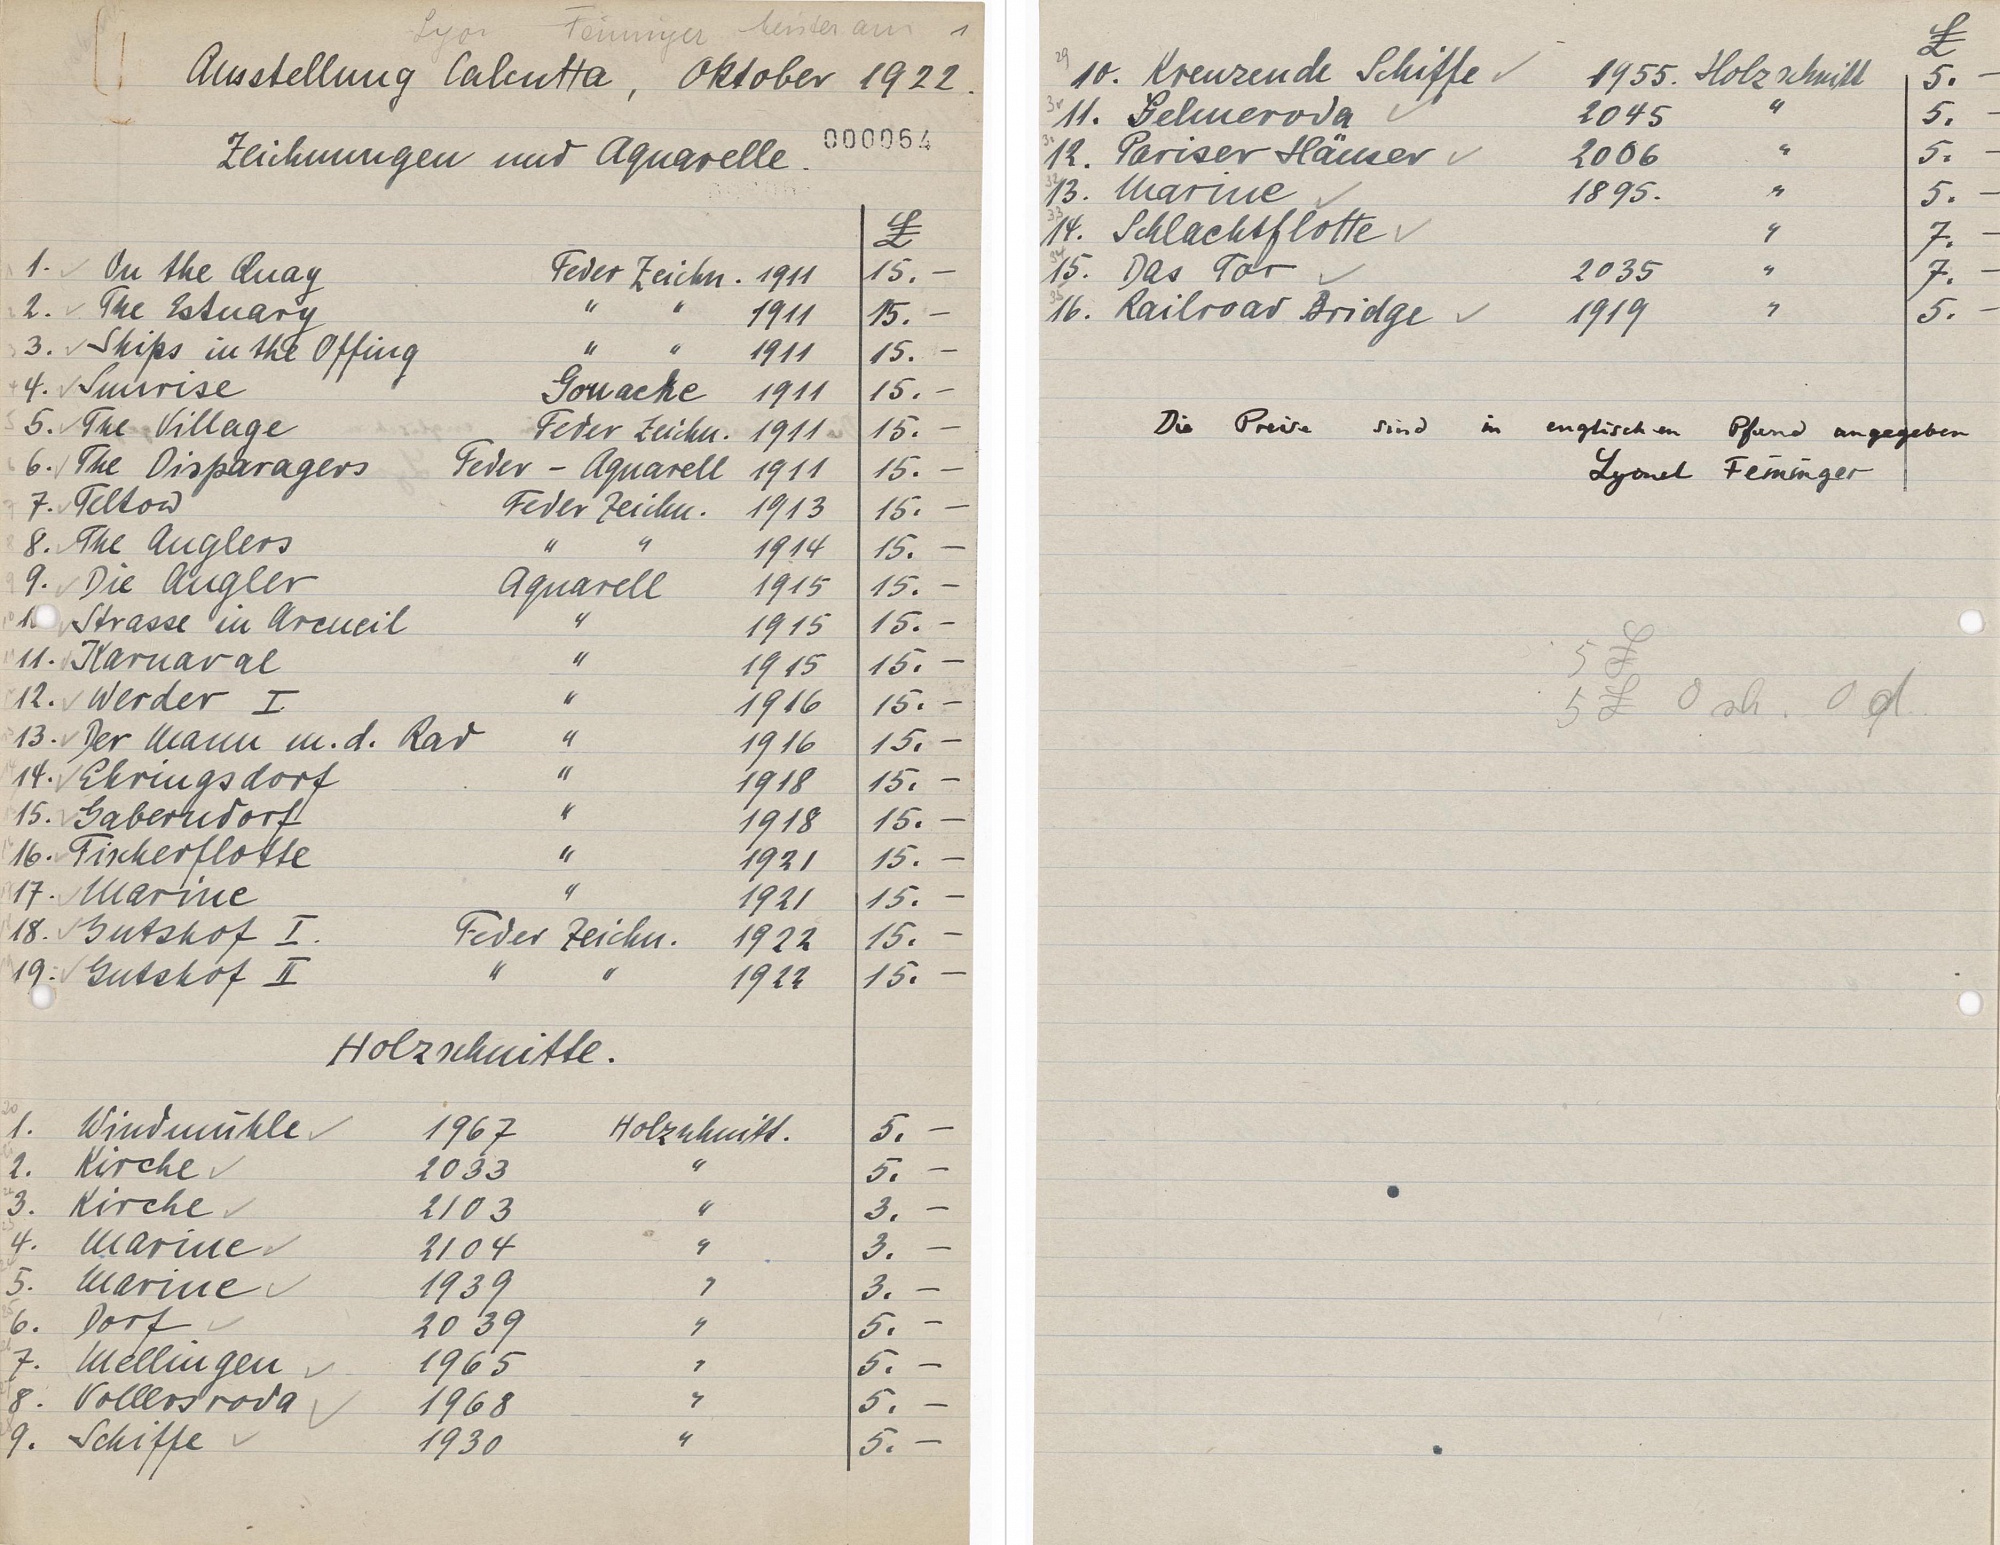 Feininger 1
Ausstellung Calcutta, Oktober 1922.
Zeichnungen und Aquarelle. 000064
£
1. On the Quay Feder Zeichn. 1911 15. –
2. The Estuary " " 1911 15. –
3. Ships in the Offing " " 1911 15. –
4. Sunrise Gouache 1911 15. –
5. The Village Feder Zeichn. 1911 15. –
6. The Disparagers Feder – Aquarell 1911 15. –
7. Teltow Feder Zeichn. 1913 15. –
8. The Anglers " " 1914 15. –
9. Die Angler Aquarell 1915 15. –
Strasse in Arcueil " 1915 15. –
11. Karnaval " 1915 15. –
12. Werder I " 1916 15. –
13. Der Mann m. d. Rad " 1916 15. –
14. Ehringsdorf " 1918 15. –
15. Gaberndorf " 1918 15. –
16. Fischerflotte " 1921 15. –
17. Marine " 1921 15. –
18. Gutshof I. Feder Zeichn. 1922 15. –
19. Gutshof II " " 1922 15. –
Holzschnitte.
1. Windmühle 1967 Holzschnitt. 5. –
2. Kirche 2033 " 5. –
3. Kirche 2103 " 3. –
4. Marine 2104 " 3. –
5. Marine 1939 " 3. –
6. Dorf 2039 " 5. –
7. Mellingen 1965 " 5. –
8. Vollersroda 1968 " 5. –
9. Schiffe 1930 " 5. –
£
10. Kreuzende Schiffe 1955. Holzschnitt 5. –
11. Gelmeroda 2045 " 5. –
12. Pariser Häuser 2006 " 5. –
13. Marine 1895. " 5. –
14. Schlachtflotte " 7. –
15. Das Tor 2035 " 7. –
16. Railroad Bridge 1919 " 5. –
Die Preise sind in englischen Pfund angegeben
Lyonel Feininger
5 £
5 £ 0 sh. 0 d